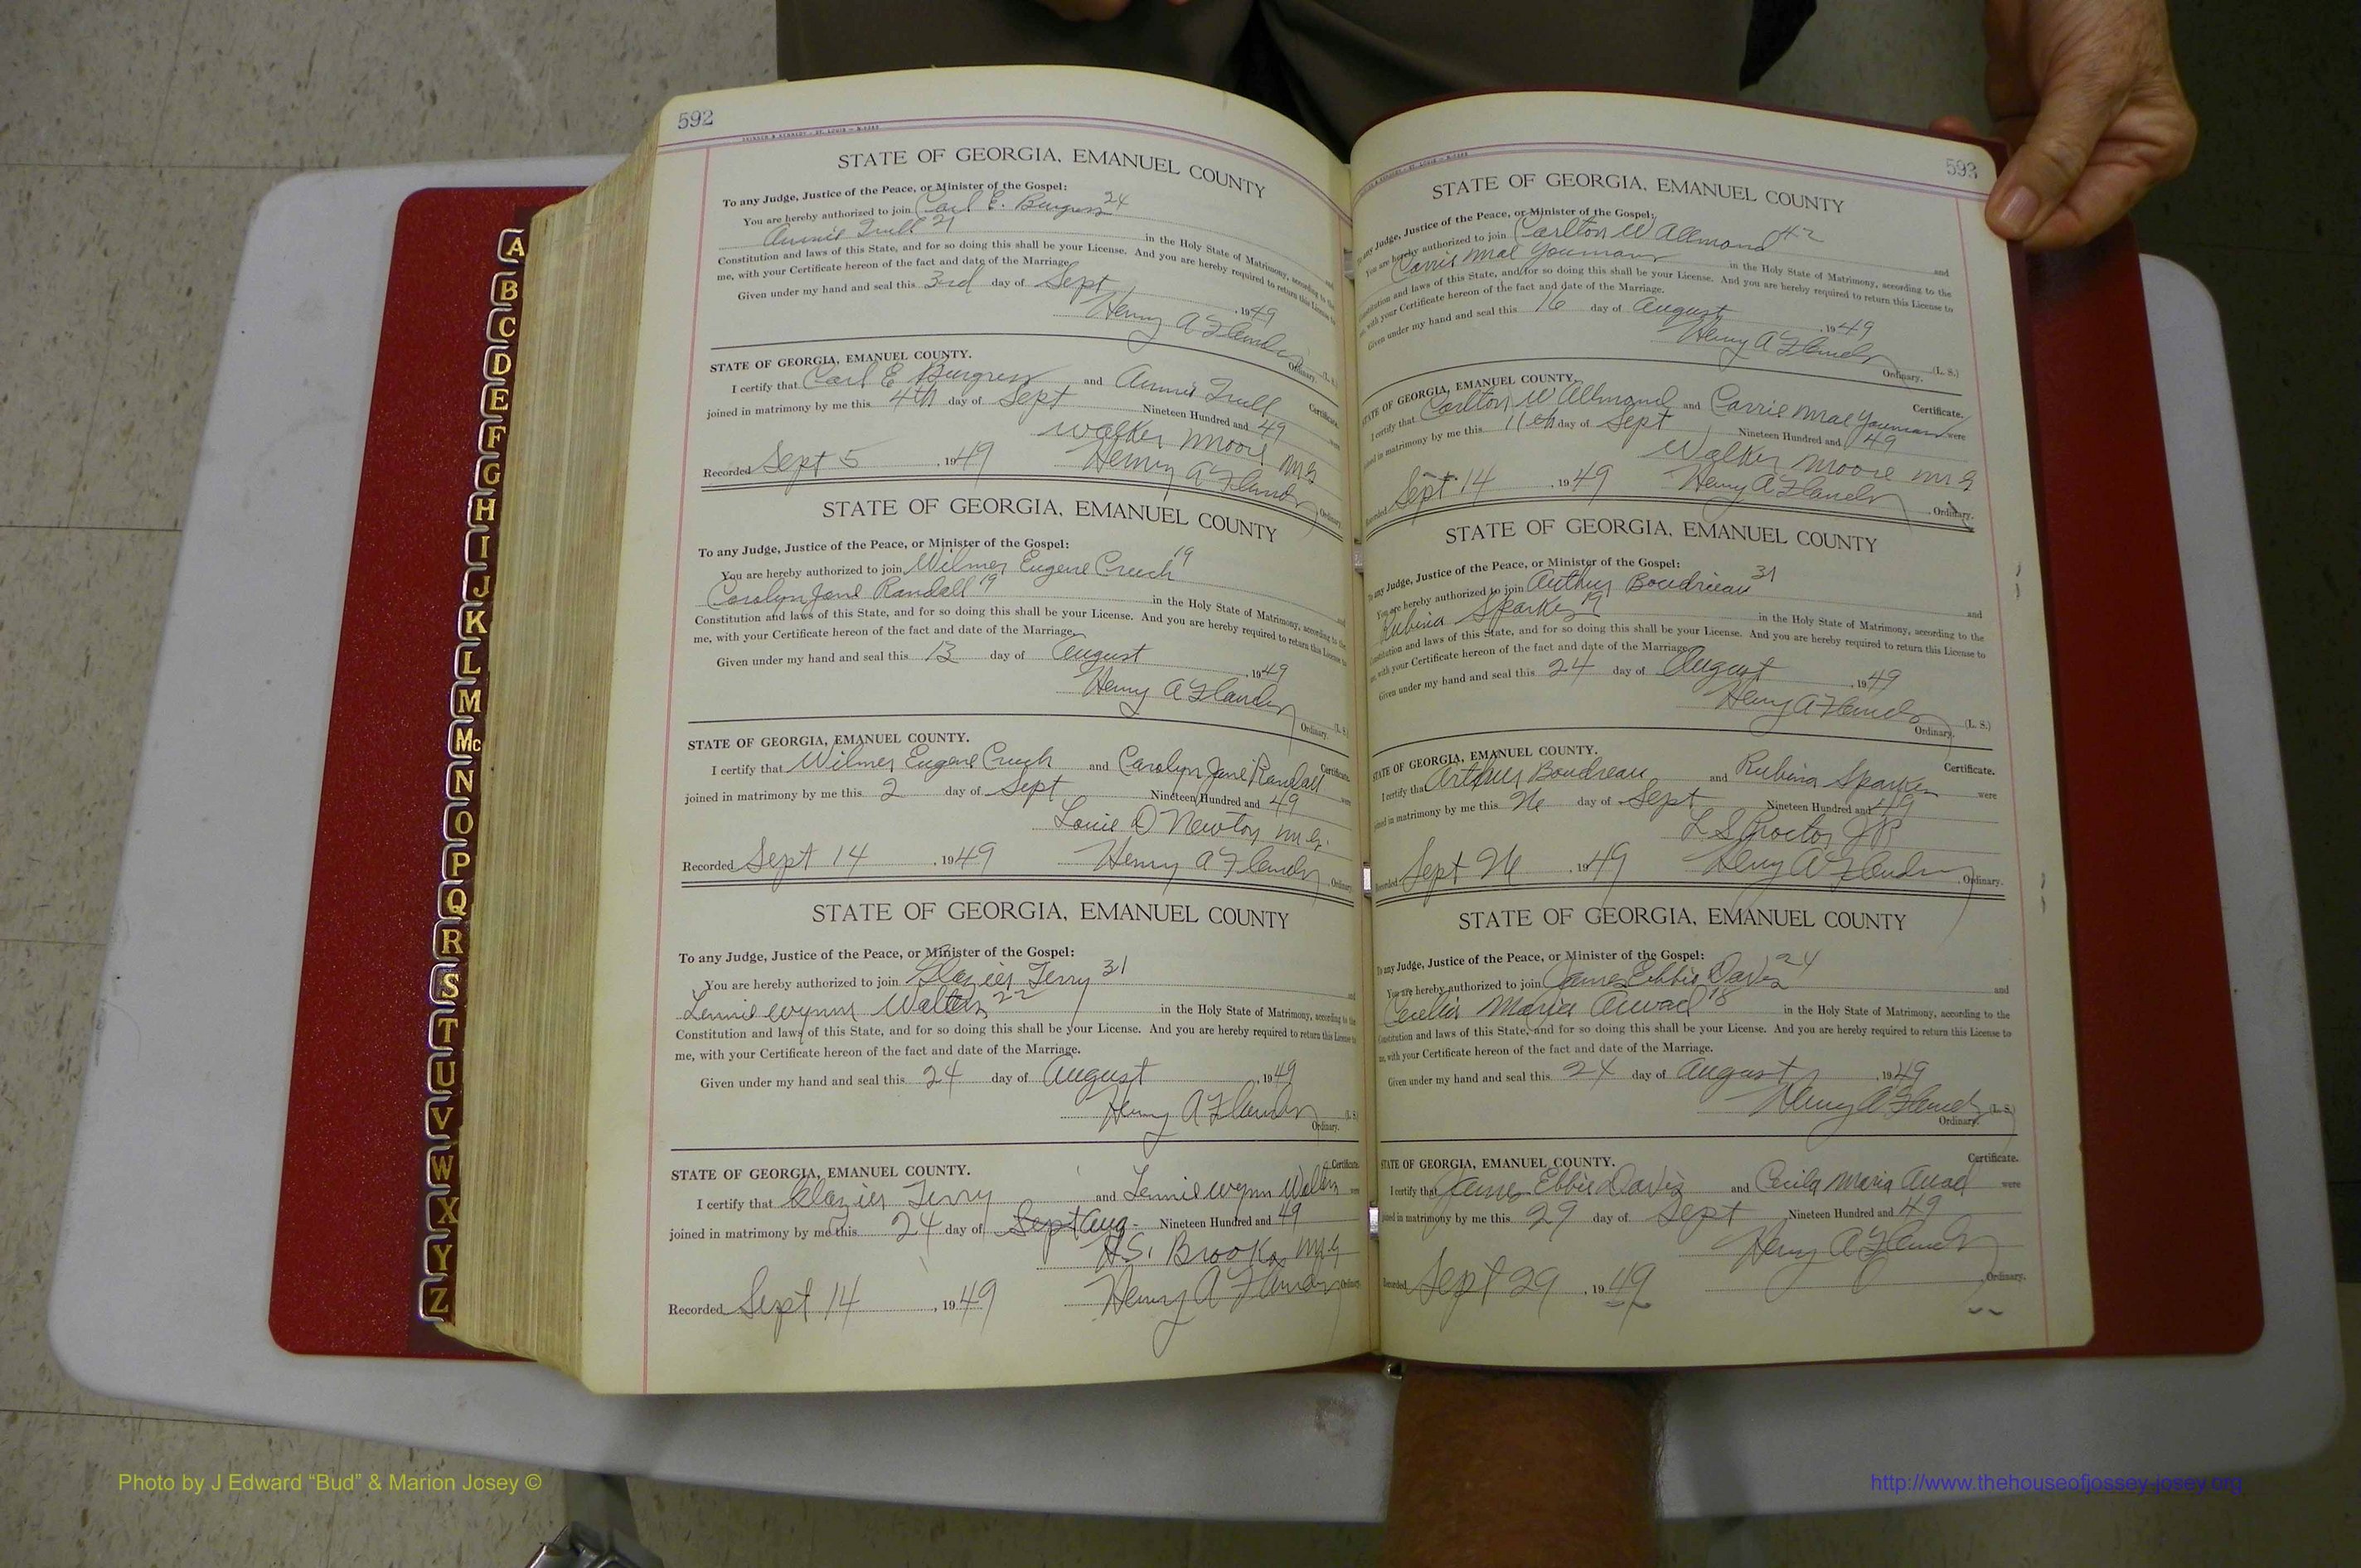 592
STATE OF GEORGIA, EMANUEL COUNTY
To any Judge, Justice of the Peace, or Minister of the Gospel:
You are hereby authorized to join Carl E. Burgess 24
Annie Trull 21 in the Holy State of Matrimony, according to the
Constitution and laws of this State, and for so doing this shall be your License. And you are hereby required to return this License to
me, with your Certificate hereon of the fact and date of the Marriage.
Given under my hand and seal this 3rd day of Sept, 1949
Henry A Flanders (L. S.)
Ordinary.
STATE OF GEORGIA, EMANUEL COUNTY.
Certificate.
I certify that Carl E Burgess and Annie Trull were
joined in matrimony by me this 4th day of Sept Nineteen Hundred and 49
Walker Moore M G
Recorded Sept 5, 1949 Henry A Flanders Ordinary.
STATE OF GEORGIA, EMANUEL COUNTY
To any Judge, Justice of the Peace, or Minister of the Gospel:
You are hereby authorized to join Wilmer Eugene Creech 19 and
Carolyn Jane Randall 19 in the Holy State of Matrimony, according to the
Constitution and laws of this State, and for so doing this shall be your License. And you are hereby required to return this License to
me, with your Certificate hereon of the fact and date of the Marriage.
Given under my hand and seal this 13 day of August, 1949
Henry A Flanders (L. S.)
Ordinary.
STATE OF GEORGIA, EMANUEL COUNTY.
Certificate.
I certify that Wilmer Eugene Creech and Carolyn Jane Randall were
joined in matrimony by me this 2 day of Sept Nineteen Hundred and 49
Louie D Newton M G.
Recorded Sept 14, 1949 Henry A Flanders Ordinary.
STATE OF GEORGIA, EMANUEL COUNTY
To any Judge, Justice of the Peace, or Minister of the Gospel:
You are hereby authorized to join Glazier Terry 31 and
Lennie Wynn Walters 22 in the Holy State of Matrimony, according to the
Constitution and laws of this State, and for so doing this shall be your License. And you are hereby required to return this License to
me, with your Certificate hereon of the fact and date of the Marriage.
Given under my hand and seal this 24 day of August, 1949
Henry A Flanders (L. S.)
Ordinary.
STATE OF GEORGIA, EMANUEL COUNTY.
Certificate.
I certify that Glazier Terry and Lennie Wynn Walters were
joined in matrimony by me this 24 day of Sept Aug- Nineteen Hundred and 49
H.S. Brooks M G
Recorded Sept 14, 1949 Henry A Flanders Ordinary.
593
STATE OF GEORGIA, EMANUEL COUNTY
To any Judge, Justice of the Peace, or Minister of the Gospel:
You are hereby authorized to join Carlton W Allmond 42 and
Carrie Mae Youmans in the Holy State of Matrimony, according to the
Constitution and laws of this State, and for so doing this shall be your License. And you are hereby required to return this License to
me, with your Certificate hereon of the fact and date of the Marriage.
Given under my hand and seal this 16 day of August, 1949
Henry A Flanders (L. S.)
Ordinary.
STATE OF GEORGIA, EMANUEL COUNTY.
Certificate.
I certify that Carlton W Allmond and Carrie Mae Youmans were
joined in matrimony by me this 11th day of Sept Nineteen Hundred and 49
Walker Moore M G
Recorded Sept 14, 1949 Henry A Flanders Ordinary.
STATE OF GEORGIA, EMANUEL COUNTY
To any Judge, Justice of the Peace, or Minister of the Gospel:
You are hereby authorized to join Arthur Boudrieau 31 and
Rubina Sparks 19 in the Holy State of Matrimony, according to the
Constitution and laws of this State, and for so doing this shall be your License. And you are hereby required to return this License to
me, with your Certificate hereon of the fact and date of the Marriage.
Given under my hand and seal this 24 day of August, 1949
Henry A Flanders (L. S.)
Ordinary.
STATE OF GEORGIA, EMANUEL COUNTY.
Certificate.
I certify that Arthur Boudreau and Rubina Sparks were
joined in matrimony by me this 26 day of Sept Nineteen Hundred and 49
L S Proctor JP
Recorded Sept 26, 1949 Henry A Flanders Ordinary.
STATE OF GEORGIA, EMANUEL COUNTY
To any Judge, Justice of the Peace, or Minister of the Gospel:
You are hereby authorized to join James Ebbie Davis 24 and
Cecilia Maria Awad 18 in the Holy State of Matrimony, according to the
Constitution and laws of this State, and for so doing this shall be your License. And you are hereby required to return this License to
me, with your Certificate hereon of the fact and date of the Marriage.
Given under my hand and seal this 24 day of August, 1949
Henry A Flanders (L. S.)
Ordinary.
STATE OF GEORGIA, EMANUEL COUNTY.
Certificate.
I certify that James Ebbie Davis and Cecila Maria Awad were
joined in matrimony by me this 29 day of Sept Nineteen Hundred and 49
Henry A Flanders
Recorded Sept 29, 1949 Ordinary.
A
B
C
D
E
F
G
H
I
J
K
L
M
Mc
N
O
P
Q
R
S
T
U
V
W
X
Y
Z
Photo by J Edward “Bud” & Marion Josey ©
http://www.thehouseofjossey-josey.org